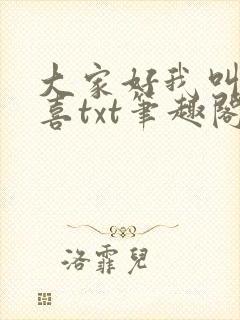 大家好我叫
喜txt笔趣阁
洛霏儿